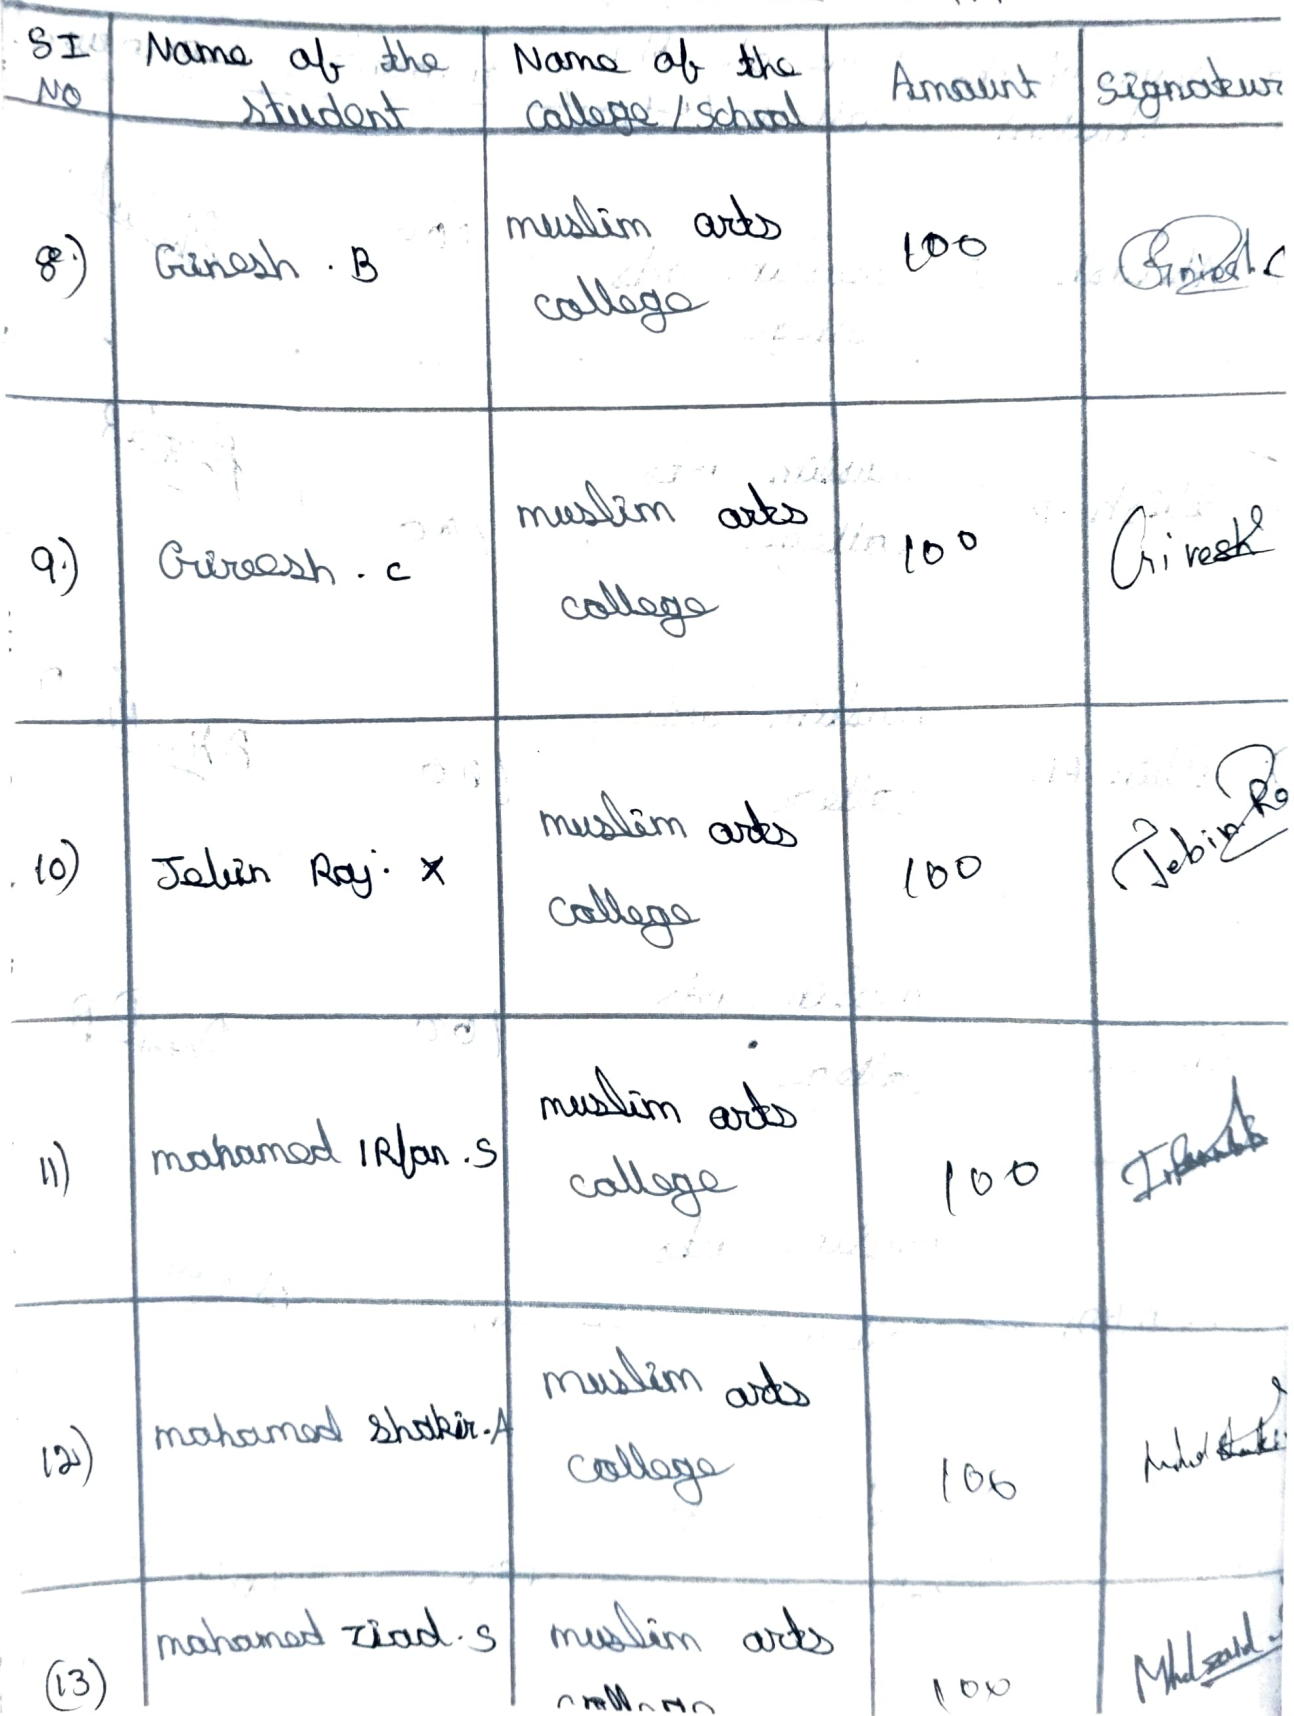 SI NO
Name of the student
Name of the College / School
Amount
Signatur
8.) Ginesh . B muslim arts college 100
9.) Gireesh . c muslim arts college 100 Giresh
10) Jebin Raj . X muslim arts college 100 Jebin Ra
11) mohamed IRfan . S muslim arts college 100
12) mohamed Shakir . A muslim arts college 100
(13) mohamed ziad . S muslim arts college 100